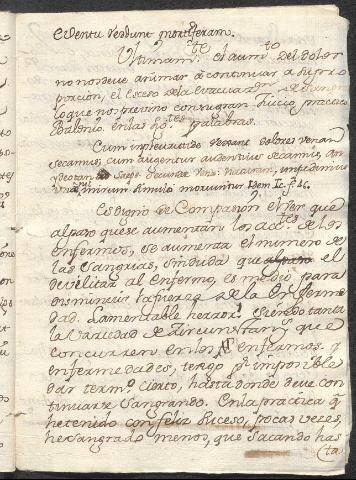 eventu reddunt mortiferam.
Ultimam.te el aum.to del dolor
no nos deve arimar a continuar a su pro
porcion, el exceso de la evacuaz.on de sangre
lo que nos previno con su gran juicio practico
Baglivio. en las sig.tes palabras.
Cum in pleuriticide versant dolores venam
secamus, cum augentur audentius secamus, an
Saepe secunda vice
mirum si mul morimntur Idem
Es digno de Compasion el ver que
al paso que se aumentan los acc.tes de los
enfermos, se aumenta el numero de
las sangrias, sin duda que el
devilitar al enfermo, es medio para
disminuir la fuerza de la enferme
dad. Lamentable herror! Siendo tanta
la variedad de circunstan.s que
concurren en los enfermos. y
enfermedades, tengo p.r imposible
dar term.o cierto, hasta donde deve con
tinuarse sangrando. En la practica q.e
he tenido con feliz suceso, pocas veces,
he sangrado menos, que sacando has
(ta